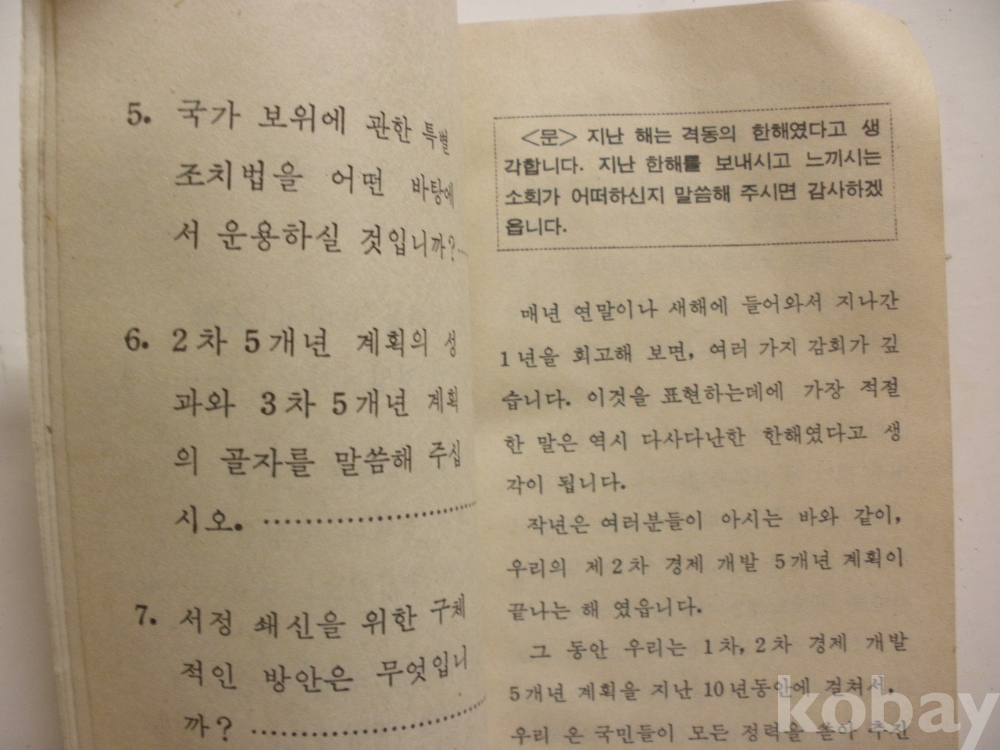 5. 국가 보위에 관한 특별
조치법을 어떤 바탕에
서 운용하실 것입니까?…
6. 2차 5개년 계획의 성
과와 3차 5개년 계획
의 골자를 말씀해 주십
시오. ……………………
7. 서정 쇄신을 위한 구체
적인 방안은 무엇입니
까? ……………………
<문> 지난 해는 격동의 한해였다고 생
각합니다. 지난 한해를 보내시고 느끼시는
소회가 어떠하신지 말씀해 주시면 감사하겠
읍니다.
매년 연말이나 새해에 들어와서 지나간
1년을 회고해 보면, 여러 가지 감회가 깊
습니다. 이것을 표현하는데에 가장 적절
한 말은 역시 다사다난한 한해였다고 생
각이 됩니다.
작년은 여러분들이 아시는 바와 같이,
우리의 제2차 경제 개발 5개년 계획이
끝나는 해 였읍니다.
그 동안 우리는 1차, 2차 경제 개발
5개년 계획을 지난 10년동안에 걸쳐서,
우리 온 국민들이 모든 정력을 쏟아 추진
kobay